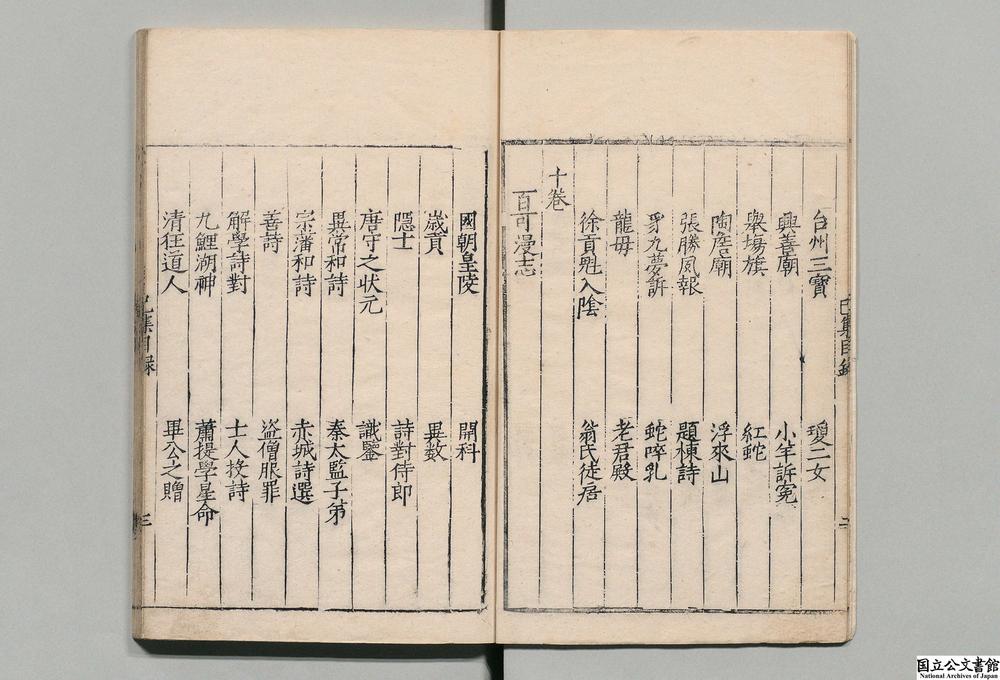 巳集目錄　二
台州三寶　瓊二女
興善廟　小羊訴寃
舉場旗　紅蛇
陶詹廟　浮來山
張勝風報　題棟詩
九夢訴　蛇啐乳
龍毋　老君殿
徐貢入陰　翁氏徒居
十卷
百可漫志
國朝皇陵　開科
歲貢　異数
隱士　詩對侍郎
唐守之狀元　識鑒
異常和詩　秦太監子弟
宗藩和詩　赤城詩選
善詩　盜僧服罪
解學詩對　士人投詩
九鯉湖神　蕭提學星命
清狂道人　畢公之贈
巳集目録　三
国立公文書館
National Archives of Japan